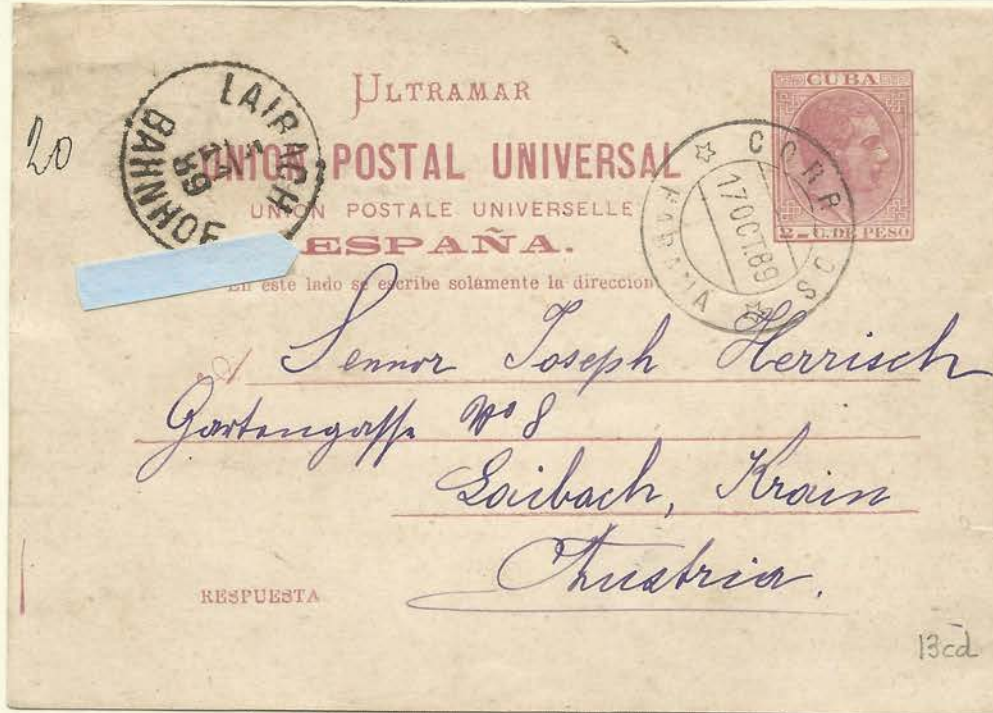 20
ULTRAMAR
UNION POSTAL UNIVERSAL
UNION POSTALE UNIVERSELLE
ESPAÑA.
En este lado se escribe solamente la direccion
CUBA
2 C. DE PESO
LAIBACH
89
BAHNHOF
CORREOS
17 OCT. 89
HABANA
Sennor Joseph Herrisch
Gartengasse No 8
Laibach, Krain
Austria.
RESPUESTA
13cd